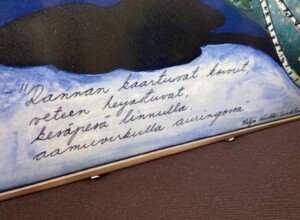 "Rannan kaartuvat koivut,
veteen heijastuvat,
kesäpesä linnulla
aamuvirkulla auringossa"